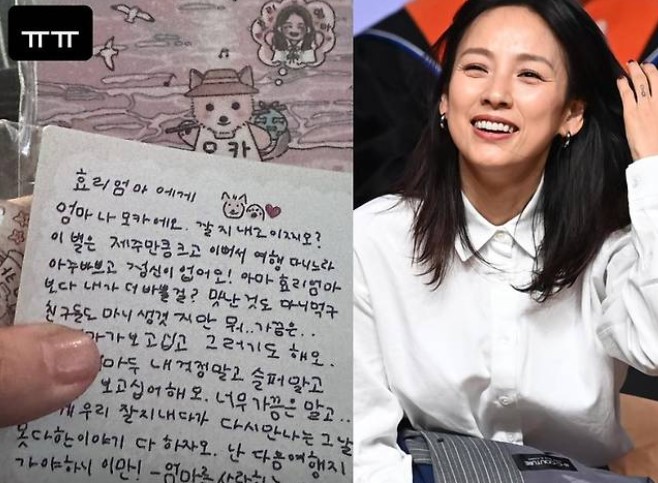 ㅠㅠ
모카
효리엄마 에게
엄마 나 모카에요. 잘 지 내고 이찌요?
이 별은 제주만큼크고 이뻐서 여행 다니느라
아주바쁘고 정신이 업어요! 아마 효리엄마
보다 내가 더 바쁠걸? 맛난것도 마니먹구
친구들도 마니 생겻 지만 뭐..가끔은..
가보고십고 그러기도 해요.
마두 내 걱정말고 슬퍼말고
보고십어해요. 너무가끔은 말고..
게 우리 잘지내다가 다시만나는 그날
못다한이야기 다 하자요. 난 다음여행지
가야하니 이만! -엄마를 사랑하는
COUTURE